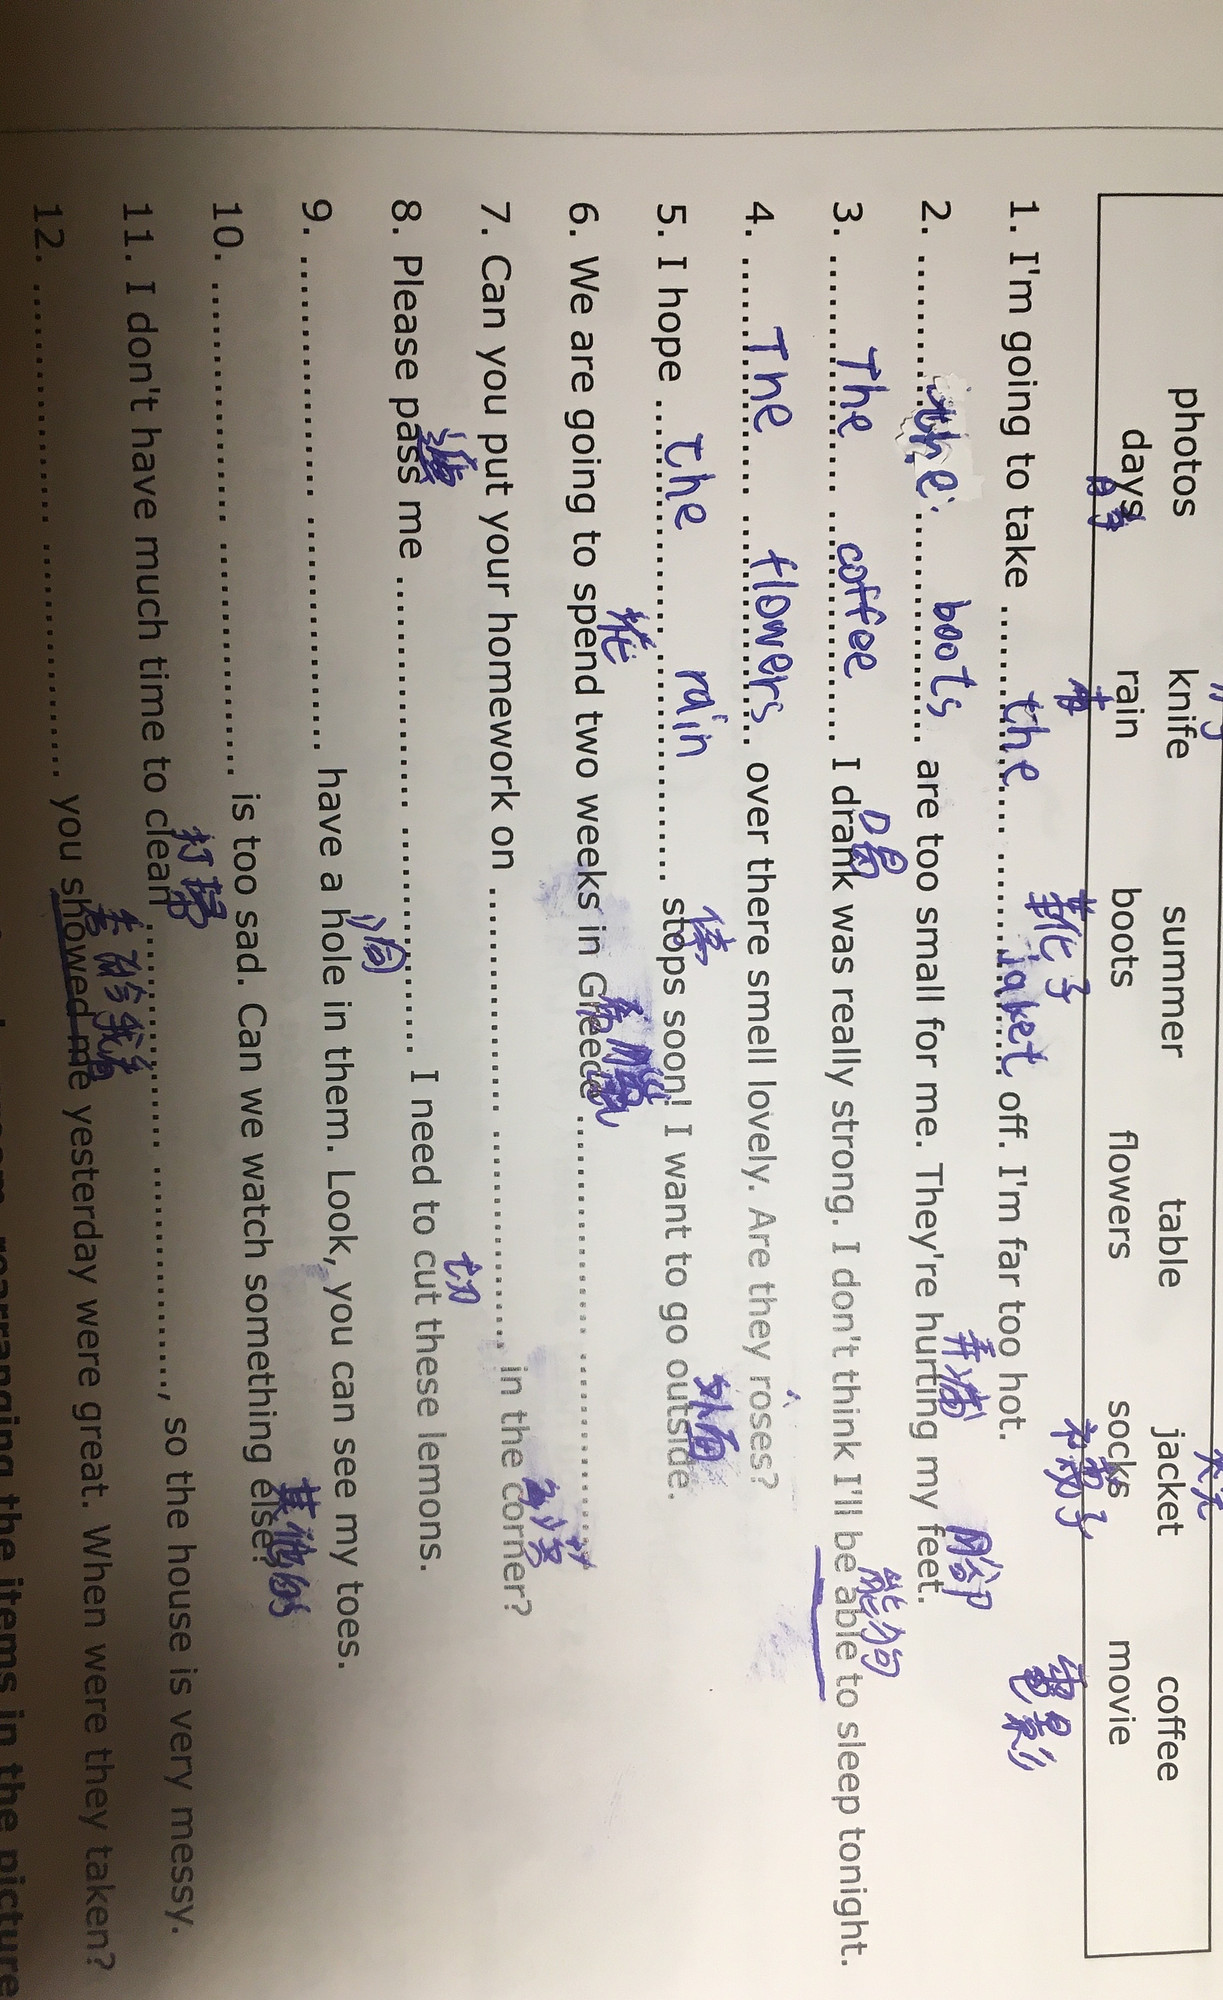 photos knife summer table jacket coffee
days rain boots flowers socks movie
靴子 電影
1. I'm going to take ...... the ...... jaket ...... off. I'm far too hot.
2. ...... the ...... boots ...... are too small for me. They're hurting my feet.
腳
3. ...... The ...... coffee ...... I drank was really strong. I don't think I'll be able to sleep tonight.
喝 能夠
4. ...... The ...... flowers ...... over there smell lovely. Are they roses?
5. I hope ...... the ...... rain ...... stops soon! I want to go outside.
外面
6. We are going to spend two weeks in Greece ......
花 希臘
7. Can you put your homework on ...... ...... in the corner?
8. Please pass me ...... ...... I need to cut these lemons.
切
9. ...... ...... have a hole in them. Look, you can see my toes.
洞
10. ...... ...... is too sad. Can we watch something else?
其他的
11. I don't have much time to clean ...... ......, so the house is very messy.
打掃
12. ...... ...... you showed me yesterday were great. When were they taken?
rearranging the items in the picture